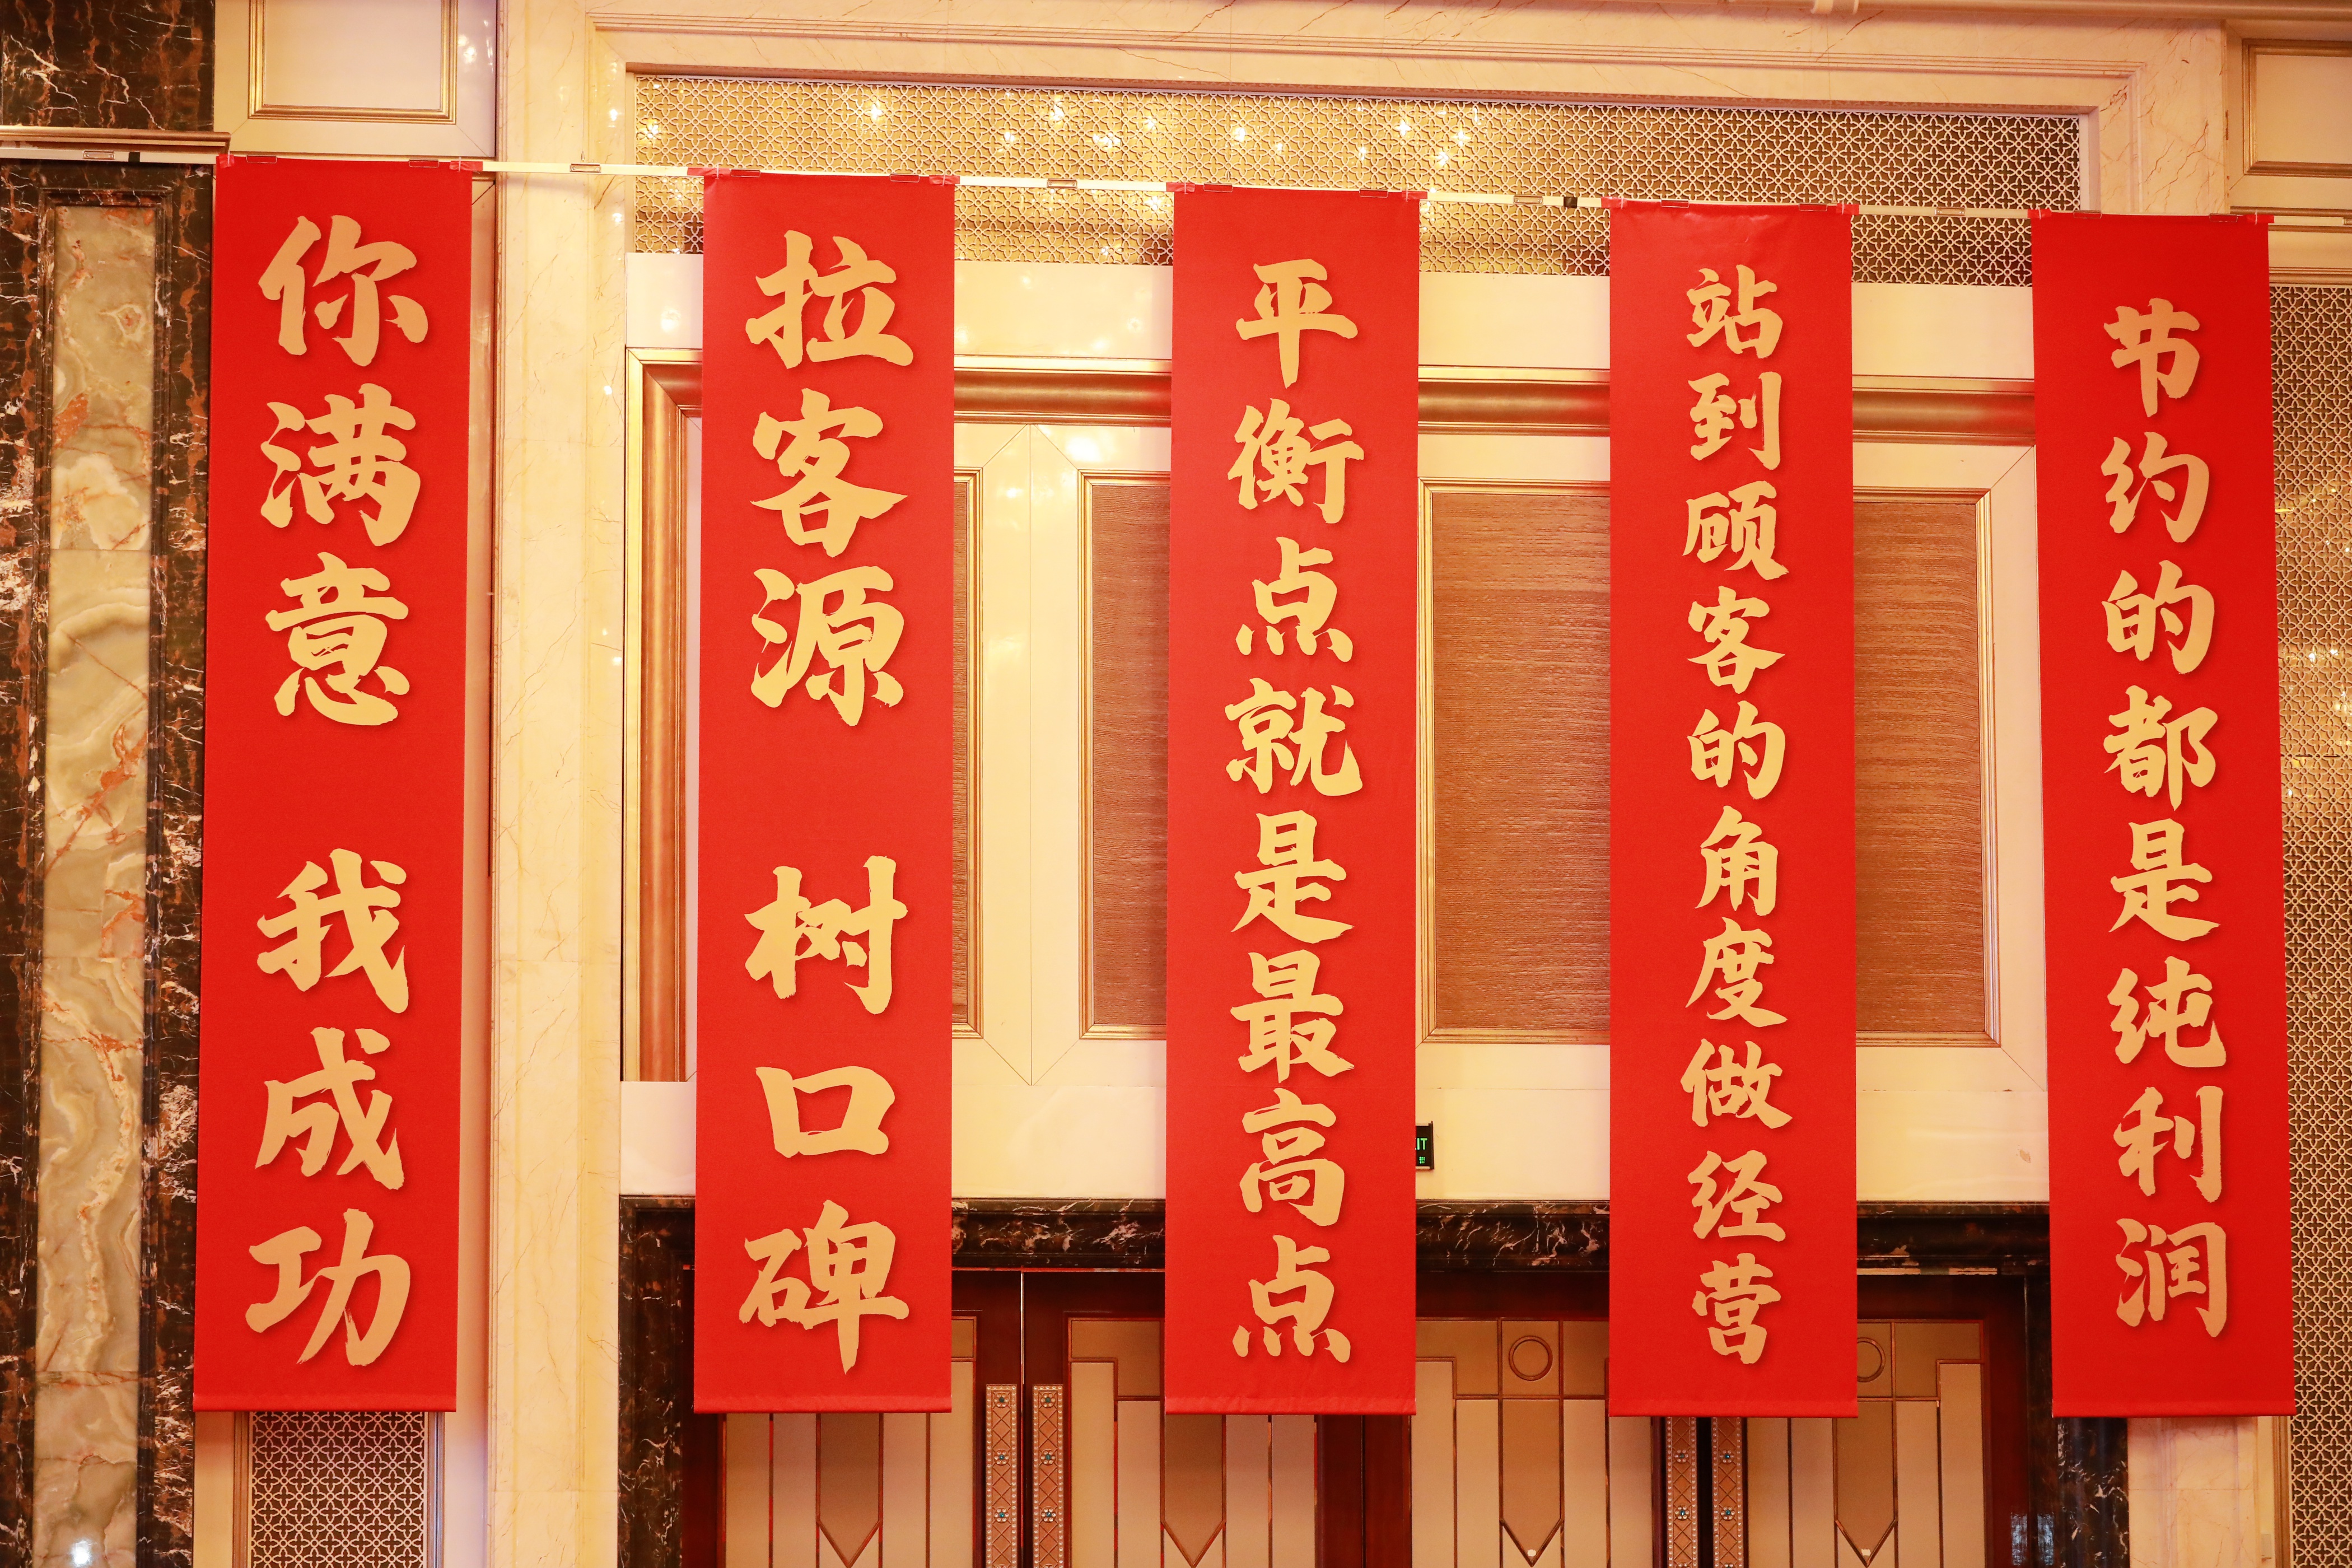 你满意 我成功
拉客源 树口碑
平衡点就是最高点
站到顾客的角度做经营
节约的都是纯利润